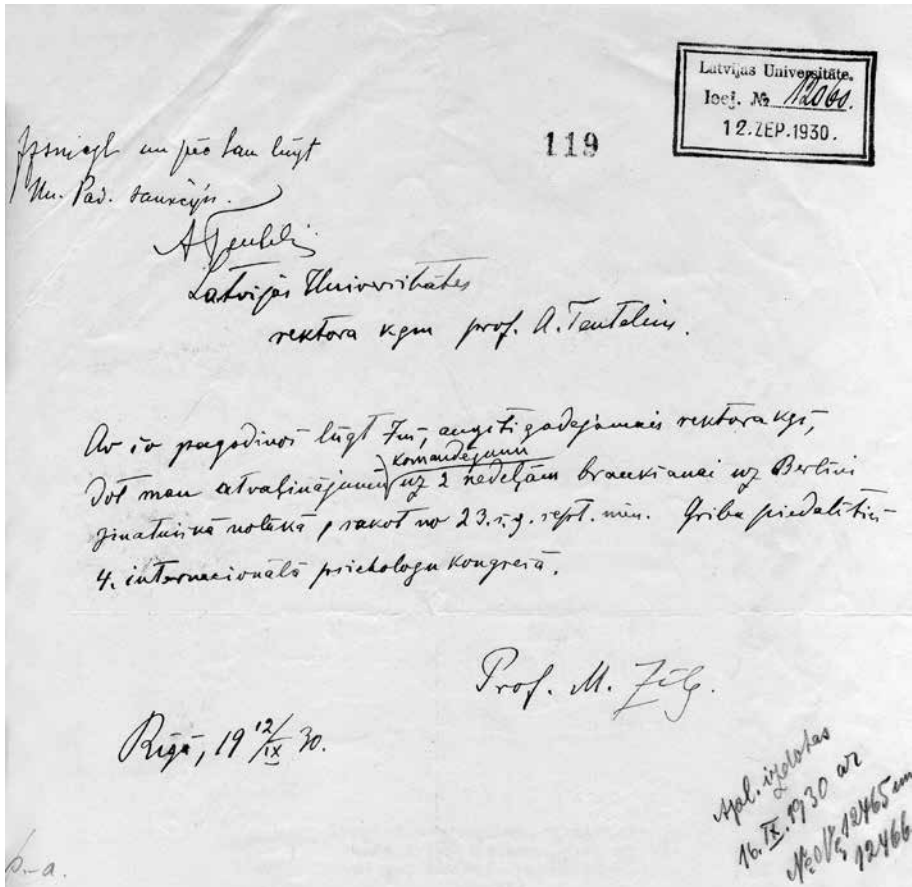 Latvijas Universitāte.
Ieej. № 12060.
12.ZEP.1930.
119
Izsniegt un pēc tam lūgt
Un. Pad. sankciju.
A Tentelis
Latvijas Universitātes
rektora kgm prof. A. Tentelim.
Ar šo pagodinos lūgt Jūs, augsti godājamais rektora kgs,
komandējumu
dot man atvaļinājumu uz 2 nedēļām braukšanai uz Berlini
zinātniskā nolūkā, sākot no 23. š. g. sept. mēn. Gribu piedalīties
4. internacionālā psichologu kongresā.
Prof. M. Zīle.
Rīgā, 19 12/IX 30.
Apl. izdotas
16. IX. 1930 ar
№№ 12465 un
12466